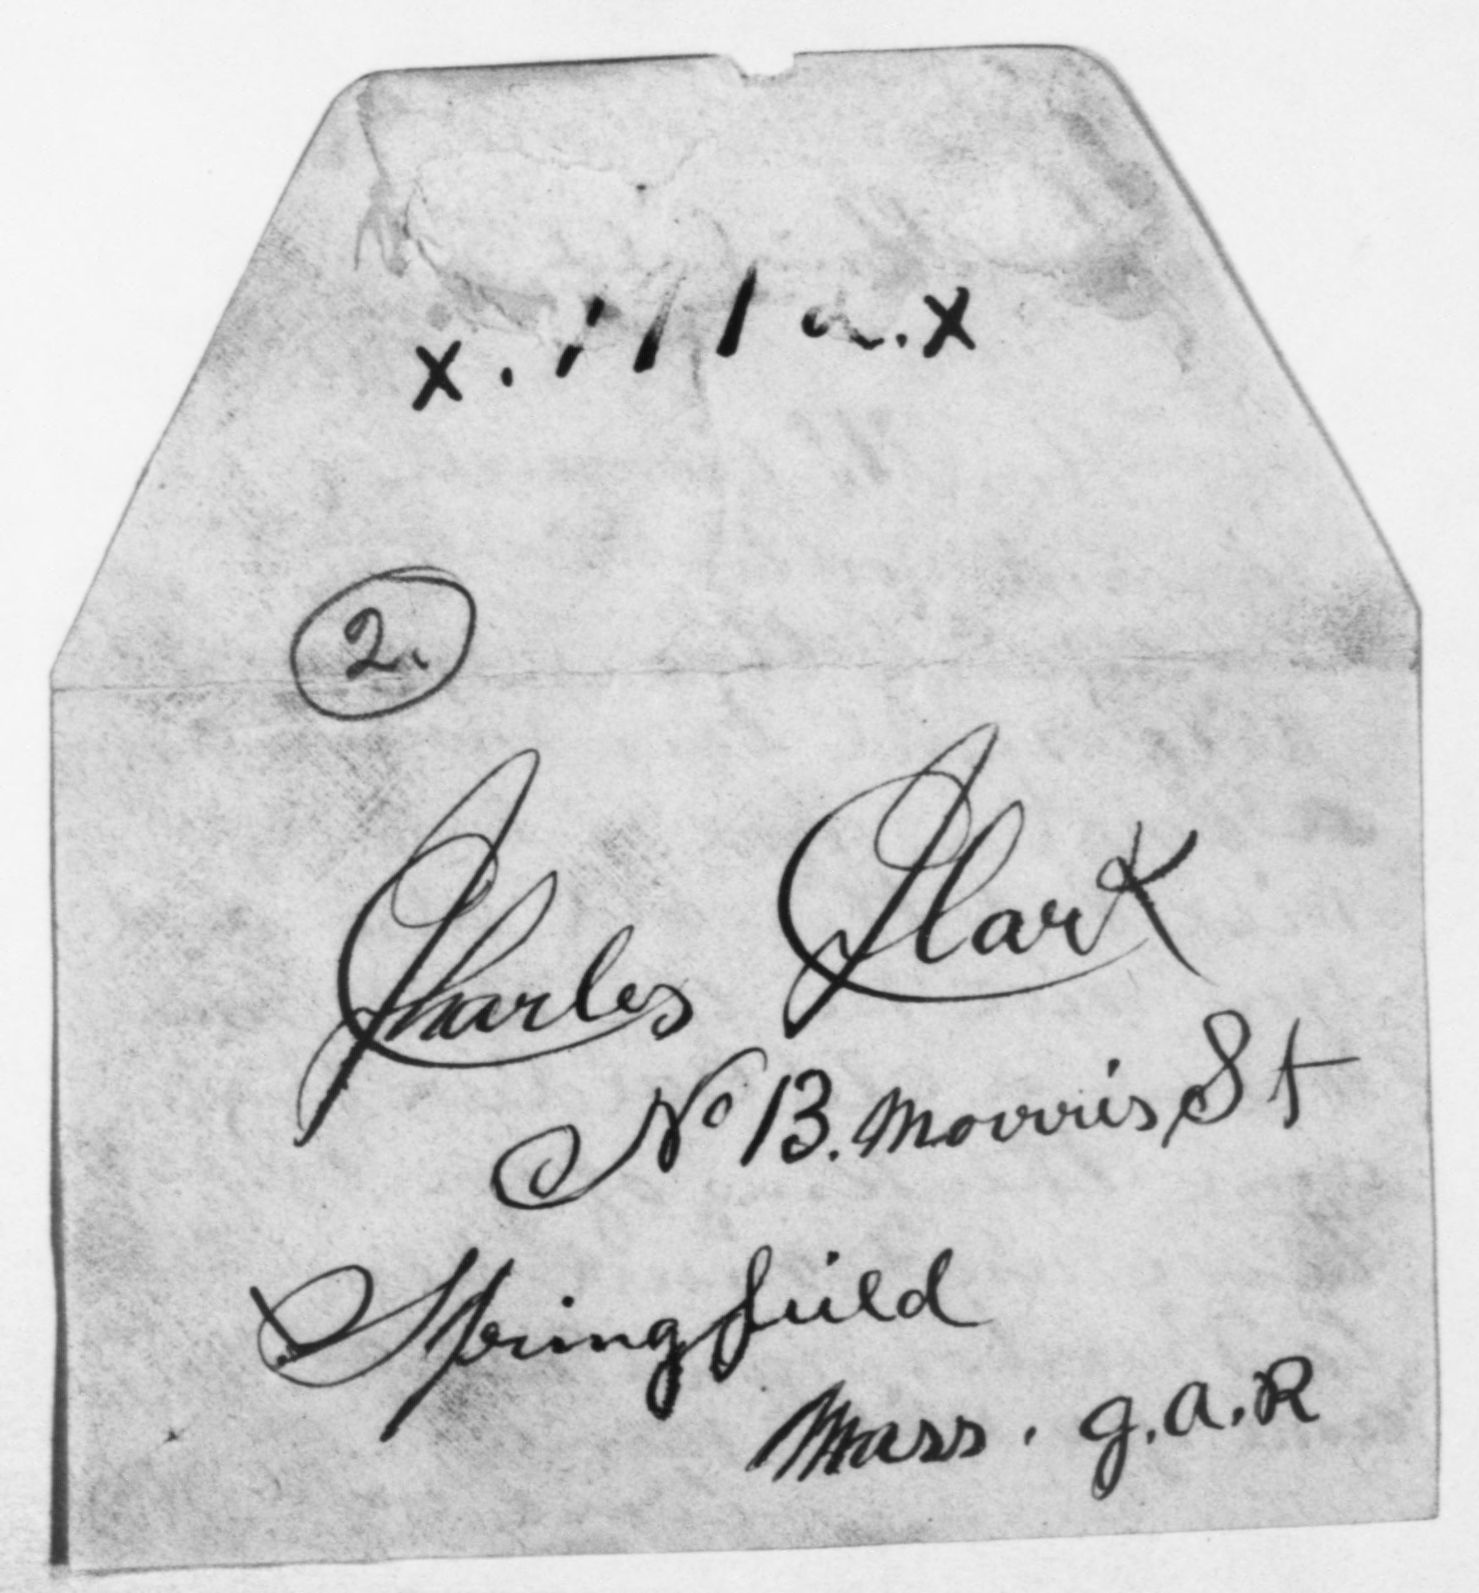 x . / / / a . x
2.
Charles Clark
No 13. Morris St
Springfield
Mass. G.A.R